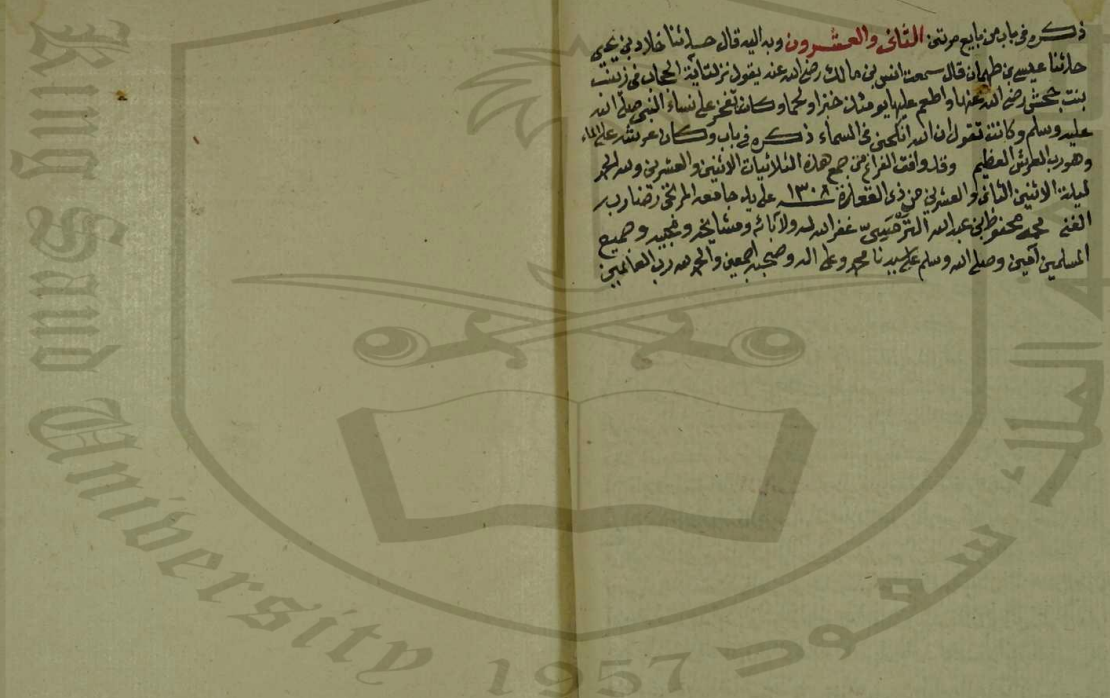 ذكره في باب من بايع مرتين الثاني والعشرون وبه اليه قال حدثنا خلاد بن يحيى
حدثنا عيسى بن طهمان قال سمعت انس بن مالك رضي الله عنه يقول نزلت اية الحجاب في زينب
بنت جحش رضي الله عنها واطعم عليها يومئذ خبزا ولحما وكانت تفخر على نساء النبي صلى الله
عليه وسلم وكانت تقول ان الله انكحني في السماء ذكره في باب وكان عرشه على الماء
وهو رب العرش العظيم وقد وافق الفراغ من جمع هذه الثلاثيات الاثنين والعشرين ولله الحمد
ليلة الاثنين الثاني والعشرين من ذي القعدة سنة ١٣٠٨ على يد جامعه المرتجي رضا ربه
الغني محمد محفوظ بن عبد الله الترمسي غفر الله له ولابائه ومشايخه ومحبيه وجميع
المسلمين آمين وصلى الله وسلم على سيدنا محمد وعلى اله وصحبه اجمعين والحمد لله رب العالمين
King Saud University
1957
سعود